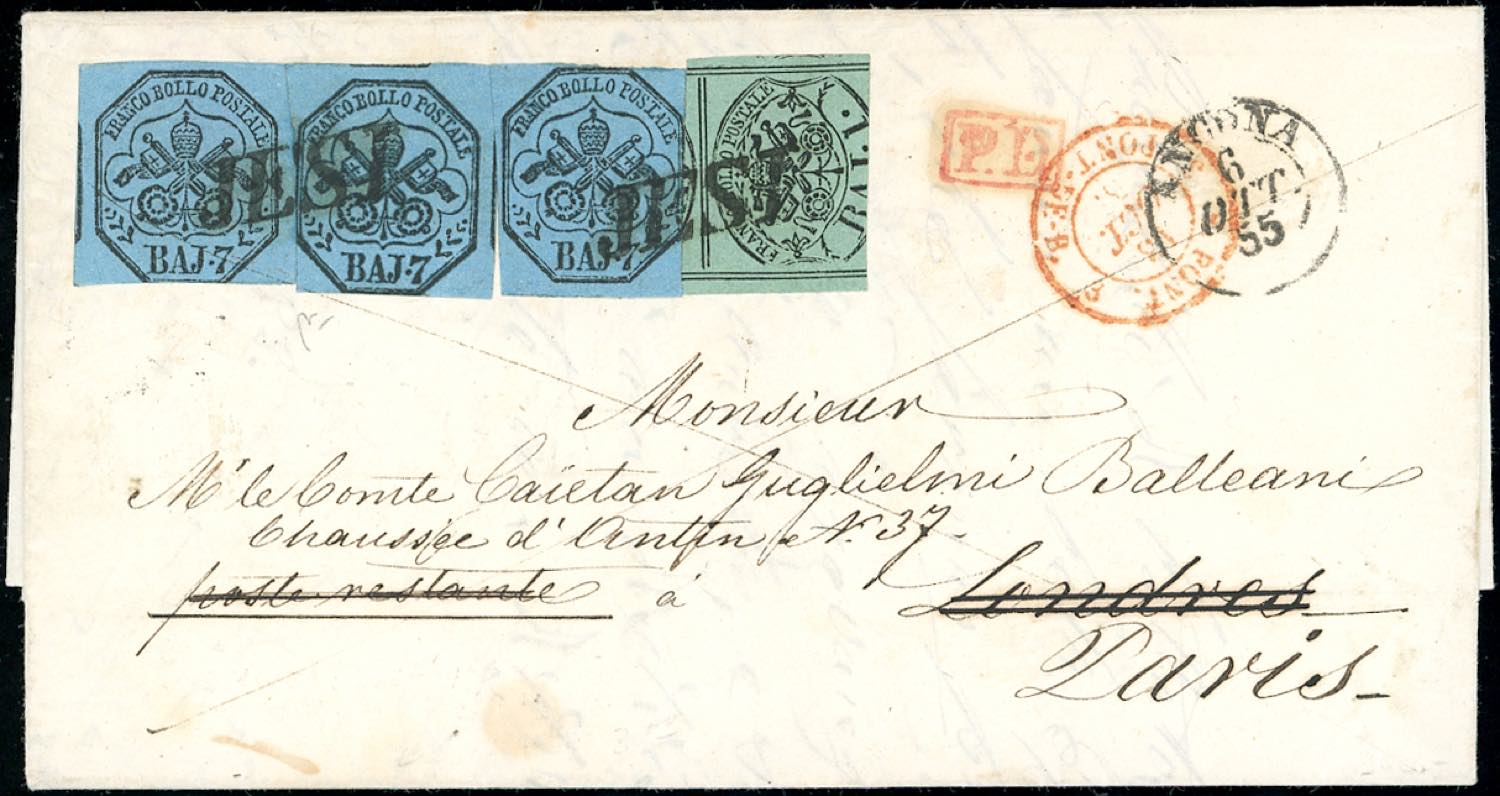 FRANCO BOLLO POSTALE
BAJ·7
FRANCO BOLLO POSTALE
BAJ·7
FRANCO BOLLO POSTALE
BAJ·7
FRANCO BOLLO POSTALE
BAJ·1·
JESI
JESI
P.D.
PONT.
PONT-DE-B.
ANCONA
6
OTT
55
Monsieur
Mr le Comte Caïetan Guglielmi Balleani
Chaussée d'Antin No. 37.
poste restante à Londres
Paris